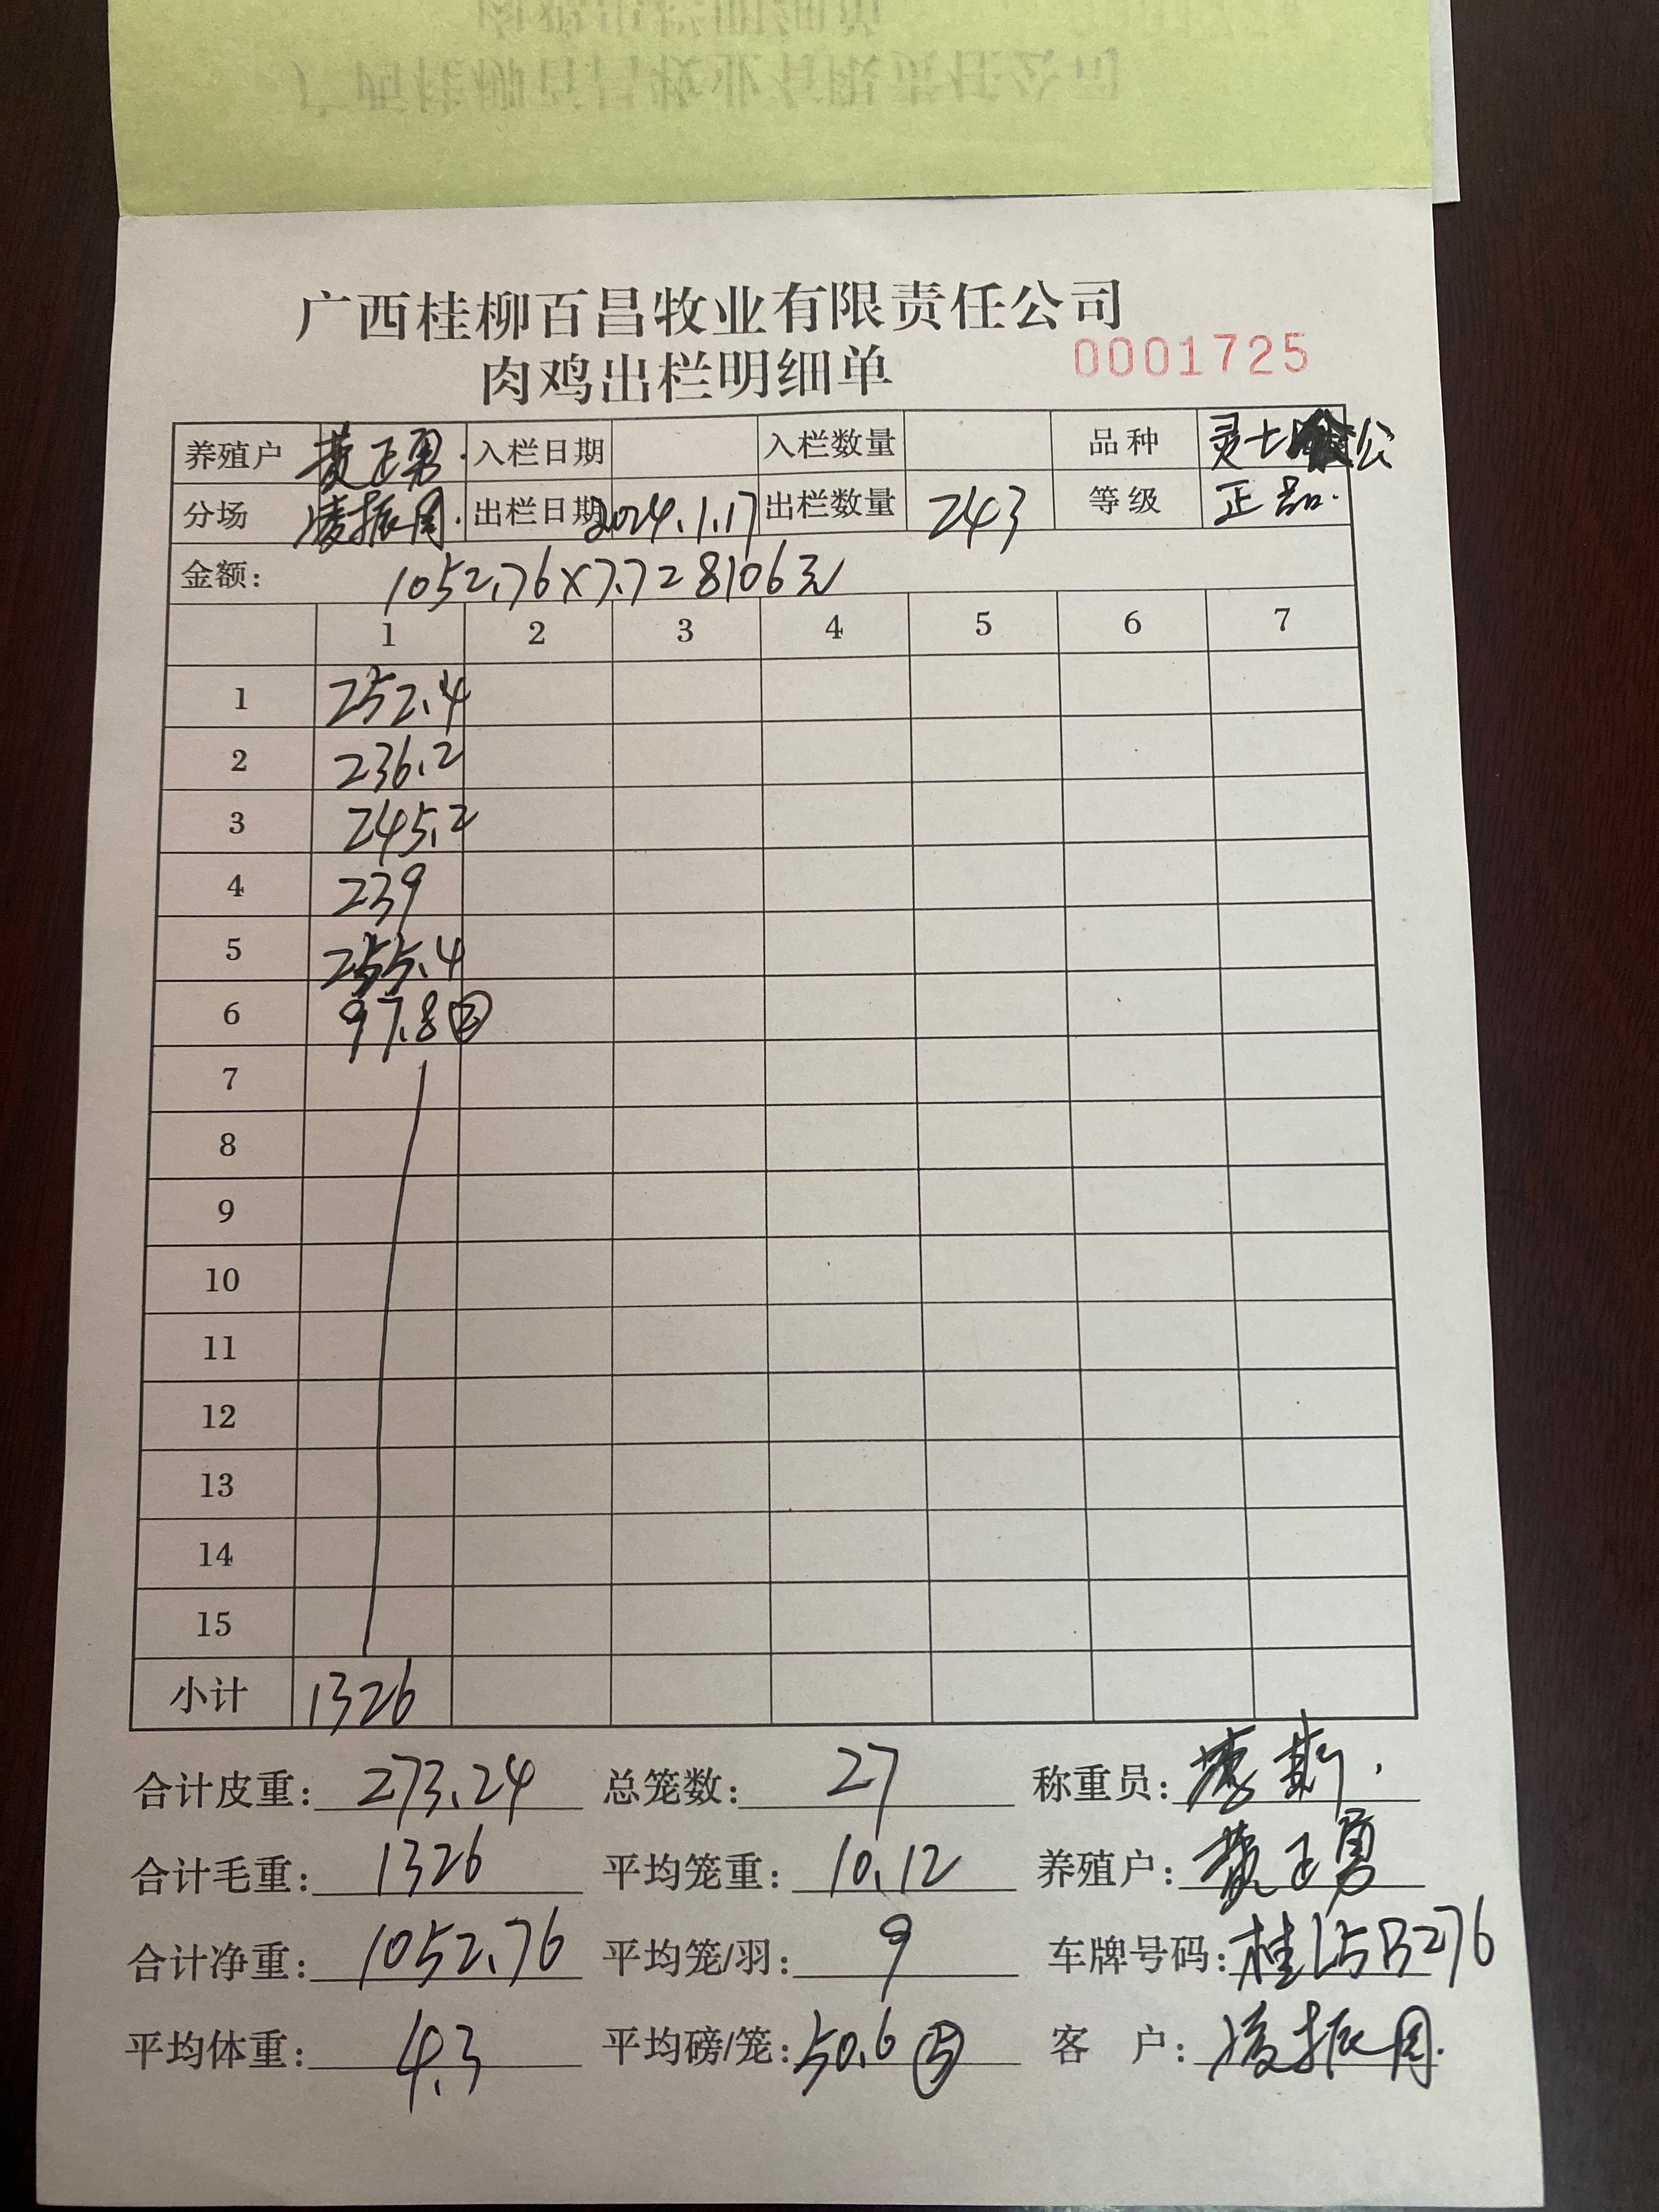 广西桂柳百昌牧业有限责任公司
肉鸡出栏明细单
0001725
养殖户 黄正勇 入栏日期 入栏数量 品种 灵土 公
分场 凌振周 出栏日期 2024.1.17 出栏数量 243 等级 正品
金额: 1052.76×7.7 = 8106元
1 2 3 4 5 6 7
1 252.4
2 236.2
3 245.2
4 239
5 255.4
6 97.8 ②
7
8
9
10
11
12
13
14
15
小计 1326
合计皮重: 273.24 总笼数: 27 称重员:
合计毛重: 1326 平均笼重: 10.12 养殖户: 黄正勇
合计净重: 1052.76 平均笼/羽: 9 车牌号码: 桂L5B276
平均体重: 4.3 平均磅/笼: 50.6 ⑤ 客 户: 凌振周